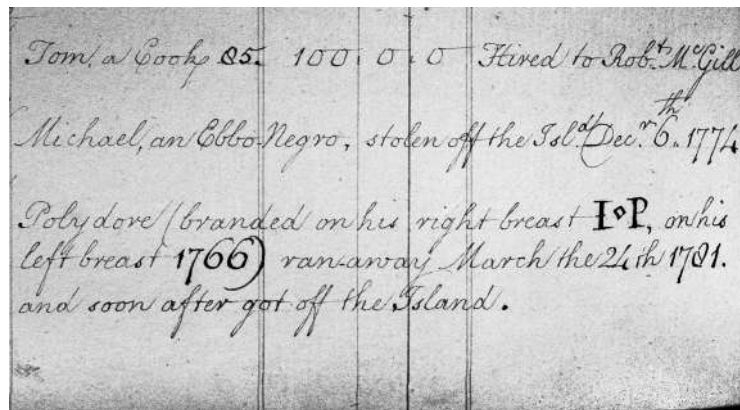 Tom, a Cook, 85. 100. 0. 0 Hired to Rob.t McGill
Michael, an Ebbo Negro, stolen off the Isl.d Dec.r 6.th 1774
Polydore (branded on his right breast I◇P, on his
left breast 1766) ran away March the 24th 1781.
and soon after got off the Island.